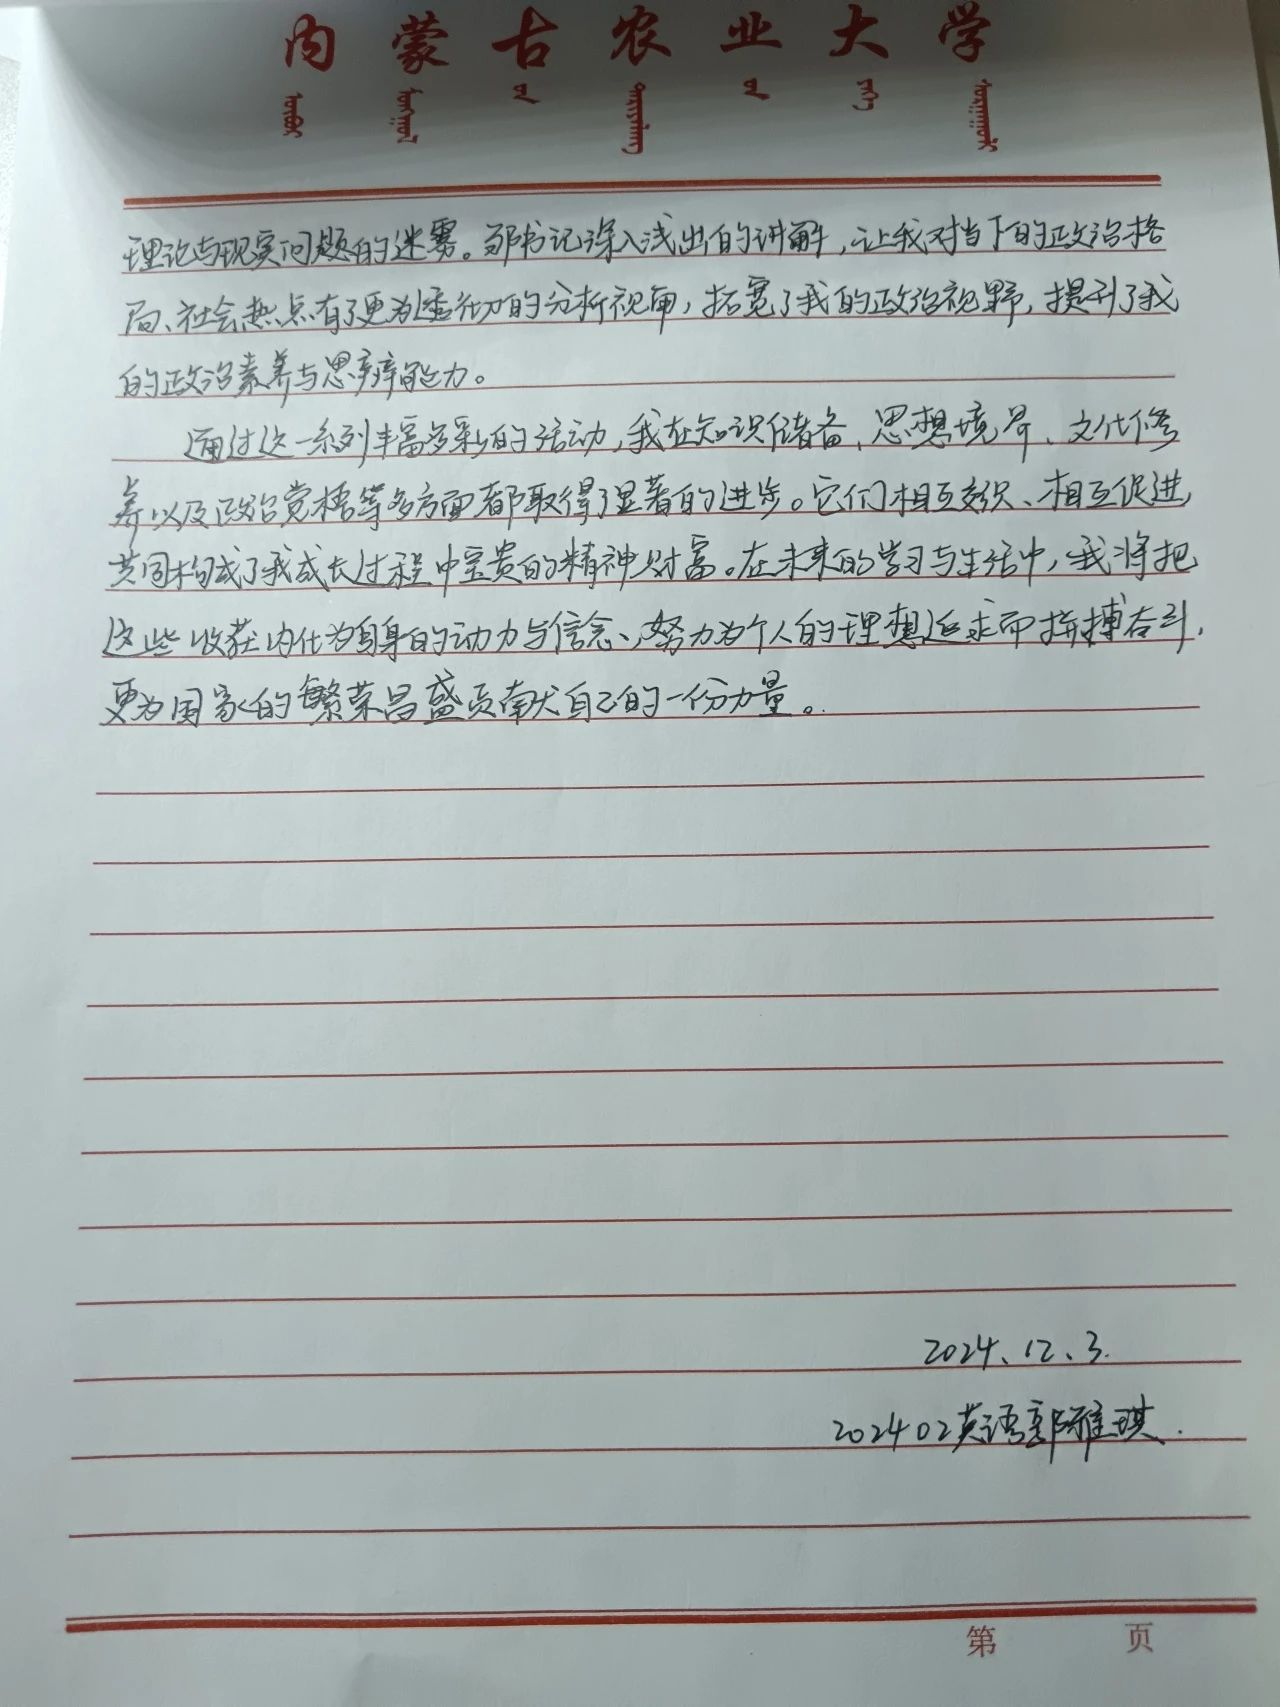 内蒙古农业大学
理论与现实问题的迷雾。邹书记深入浅出的讲解，让我对当下的政治格
局、社会热点有了更为透彻的分析视角，拓宽了我的政治视野，提升了我
的政治素养与思辨能力。
通过这一系列丰富多彩的活动，我在知识储备、思想境界、文化修
养以及政治觉悟等多方面都取得了显著的进步。它们相互交织、相互促进
共同构成了我成长过程中宝贵的精神财富。在未来的学习与生活中，我将把
这些收获内化为自身的动力与信念，努力为个人的理想追求而拼搏奋斗，
更为国家的繁荣昌盛贡献自己的一份力量。
2024、12、3.
202402英语郭雅琪.
第 页